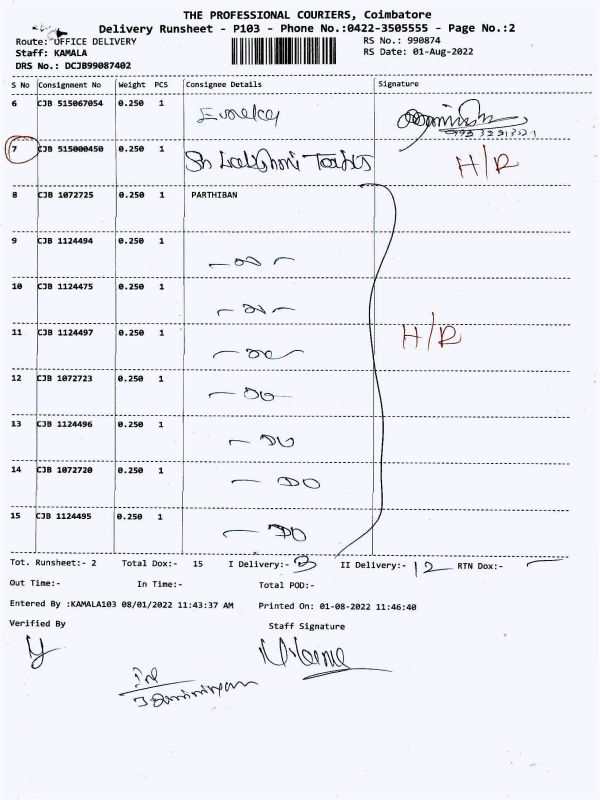 THE PROFESSIONAL COURIERS, Coimbatore
Delivery Runsheet - P103 - Phone No.:0422-3505555 - Page No.:2
Route: OFFICE DELIVERY RS No.: 990874
Staff: KAMALA RS Date: 01-Aug-2022
DRS No.: DCJB99087402
S No Consignment No Weight PCS Consignee Details Signature
6 CJB 515067054 0.250 1
7 CJB 515000450 0.250 1 H/R
8 CJB 1072725 0.250 1 PARTHIBAN
9 CJB 1124494 0.250 1
10 CJB 1124475 0.250 1
11 CJB 1124497 0.250 1 H/R
12 CJB 1072723 0.250 1 - DO
13 CJB 1124496 0.250 1 - DO
14 CJB 1072720 0.250 1 - DO
15 CJB 1124495 0.250 1 - DO
Tot. Runsheet:- 2 Total Dox:- 15 I Delivery:- 3 II Delivery:- 12 RTN Dox:- -
Out Time:- In Time:- Total POD:-
Entered By :KAMALA103 08/01/2022 11:43:37 AM Printed On: 01-08-2022 11:46:40
Verified By Staff Signature